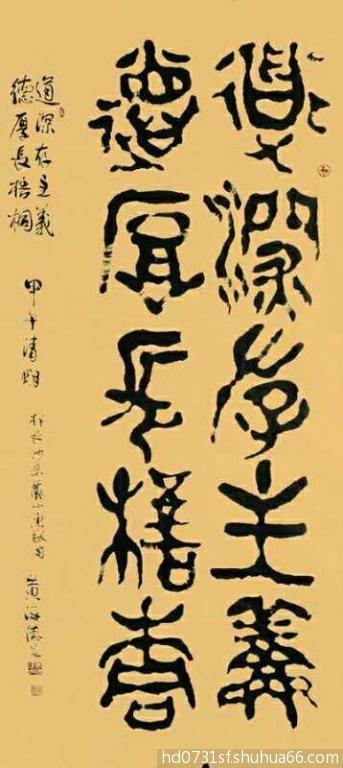 道深存主義
德厚長梧桐
道深存主義
德厚長梧桐
甲午清明
hd0731sfshuhua66.com